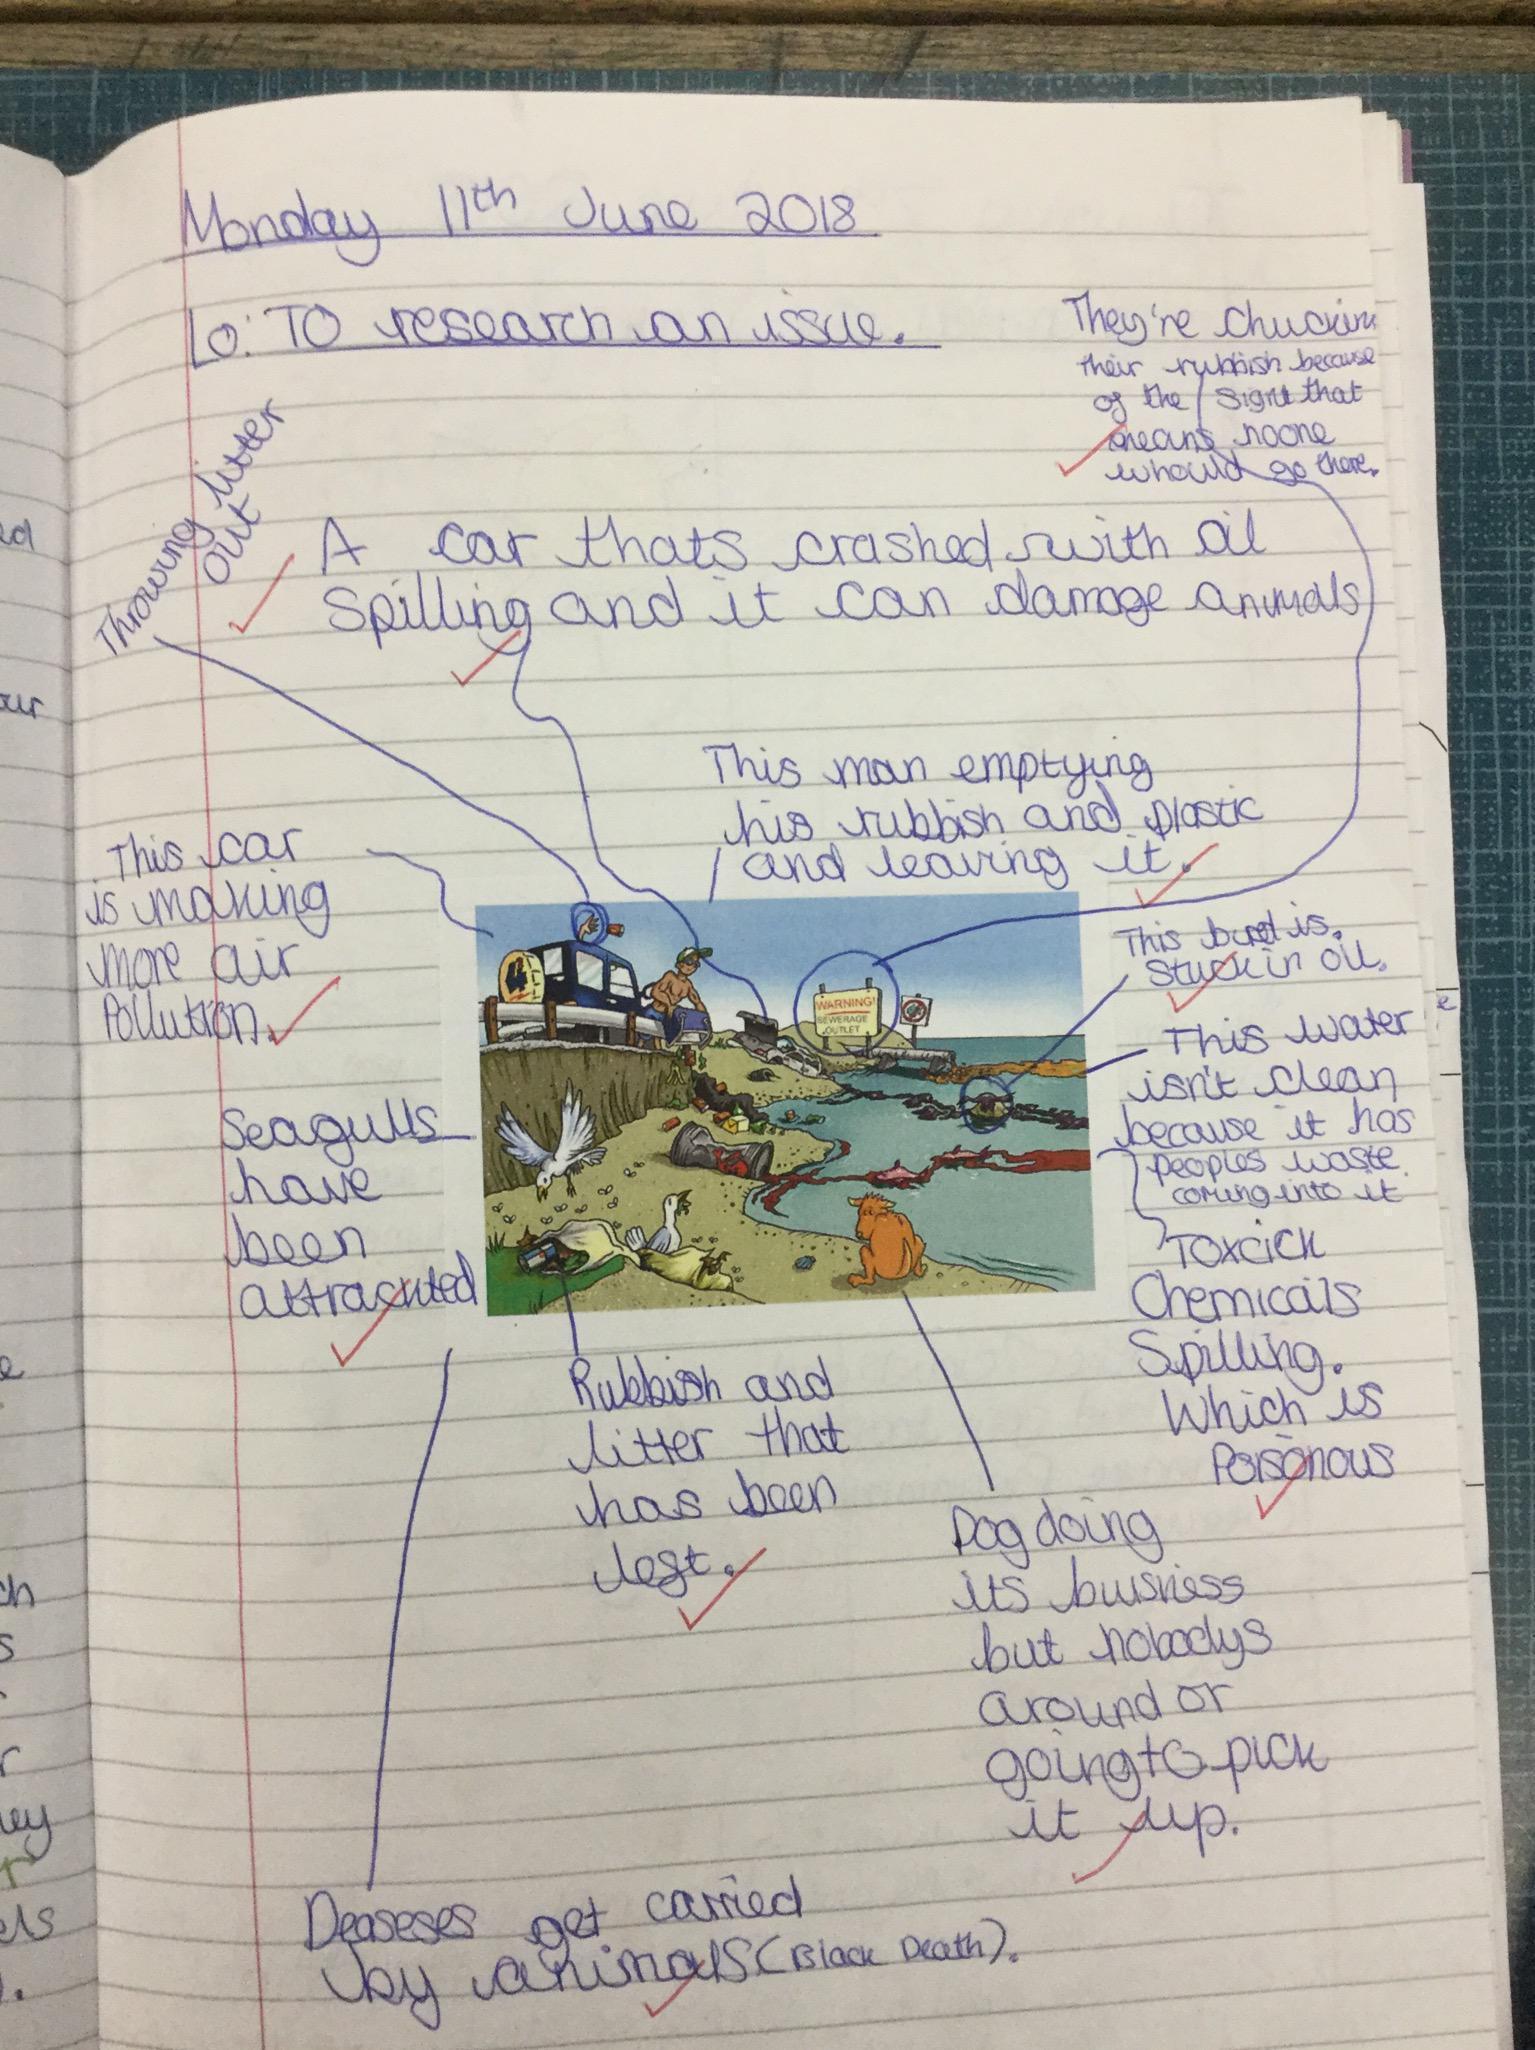 Monday 11th June 2018
Lo: TO research an issue.
They're chucking
their rubbish because
of the signt that
means noone
whould go there.
Throwing litter
out
A car thats crashed with oil
Spilling and it can damage animals
This man emptying
his rubbish and plastic
and leaving it.
This car
is making
more air
Pollution.
This bird is
stuck in oil.
This water
isn't clean
because it has
peoples waste
coming into it
Toxcick
Chemicals
Spilling.
Which is
Poisonous
WARNING!
SEWERAGE
OUTLET
4
Seagulls
have
been
attrackted
Rubbish and
litter that
has been
left.
Dog doing
its buisness
but nobodys
around or
going to pick
it up.
Deaseses get carried
by animals (Black Death).
our
e
ch
s
r
ey
r
els